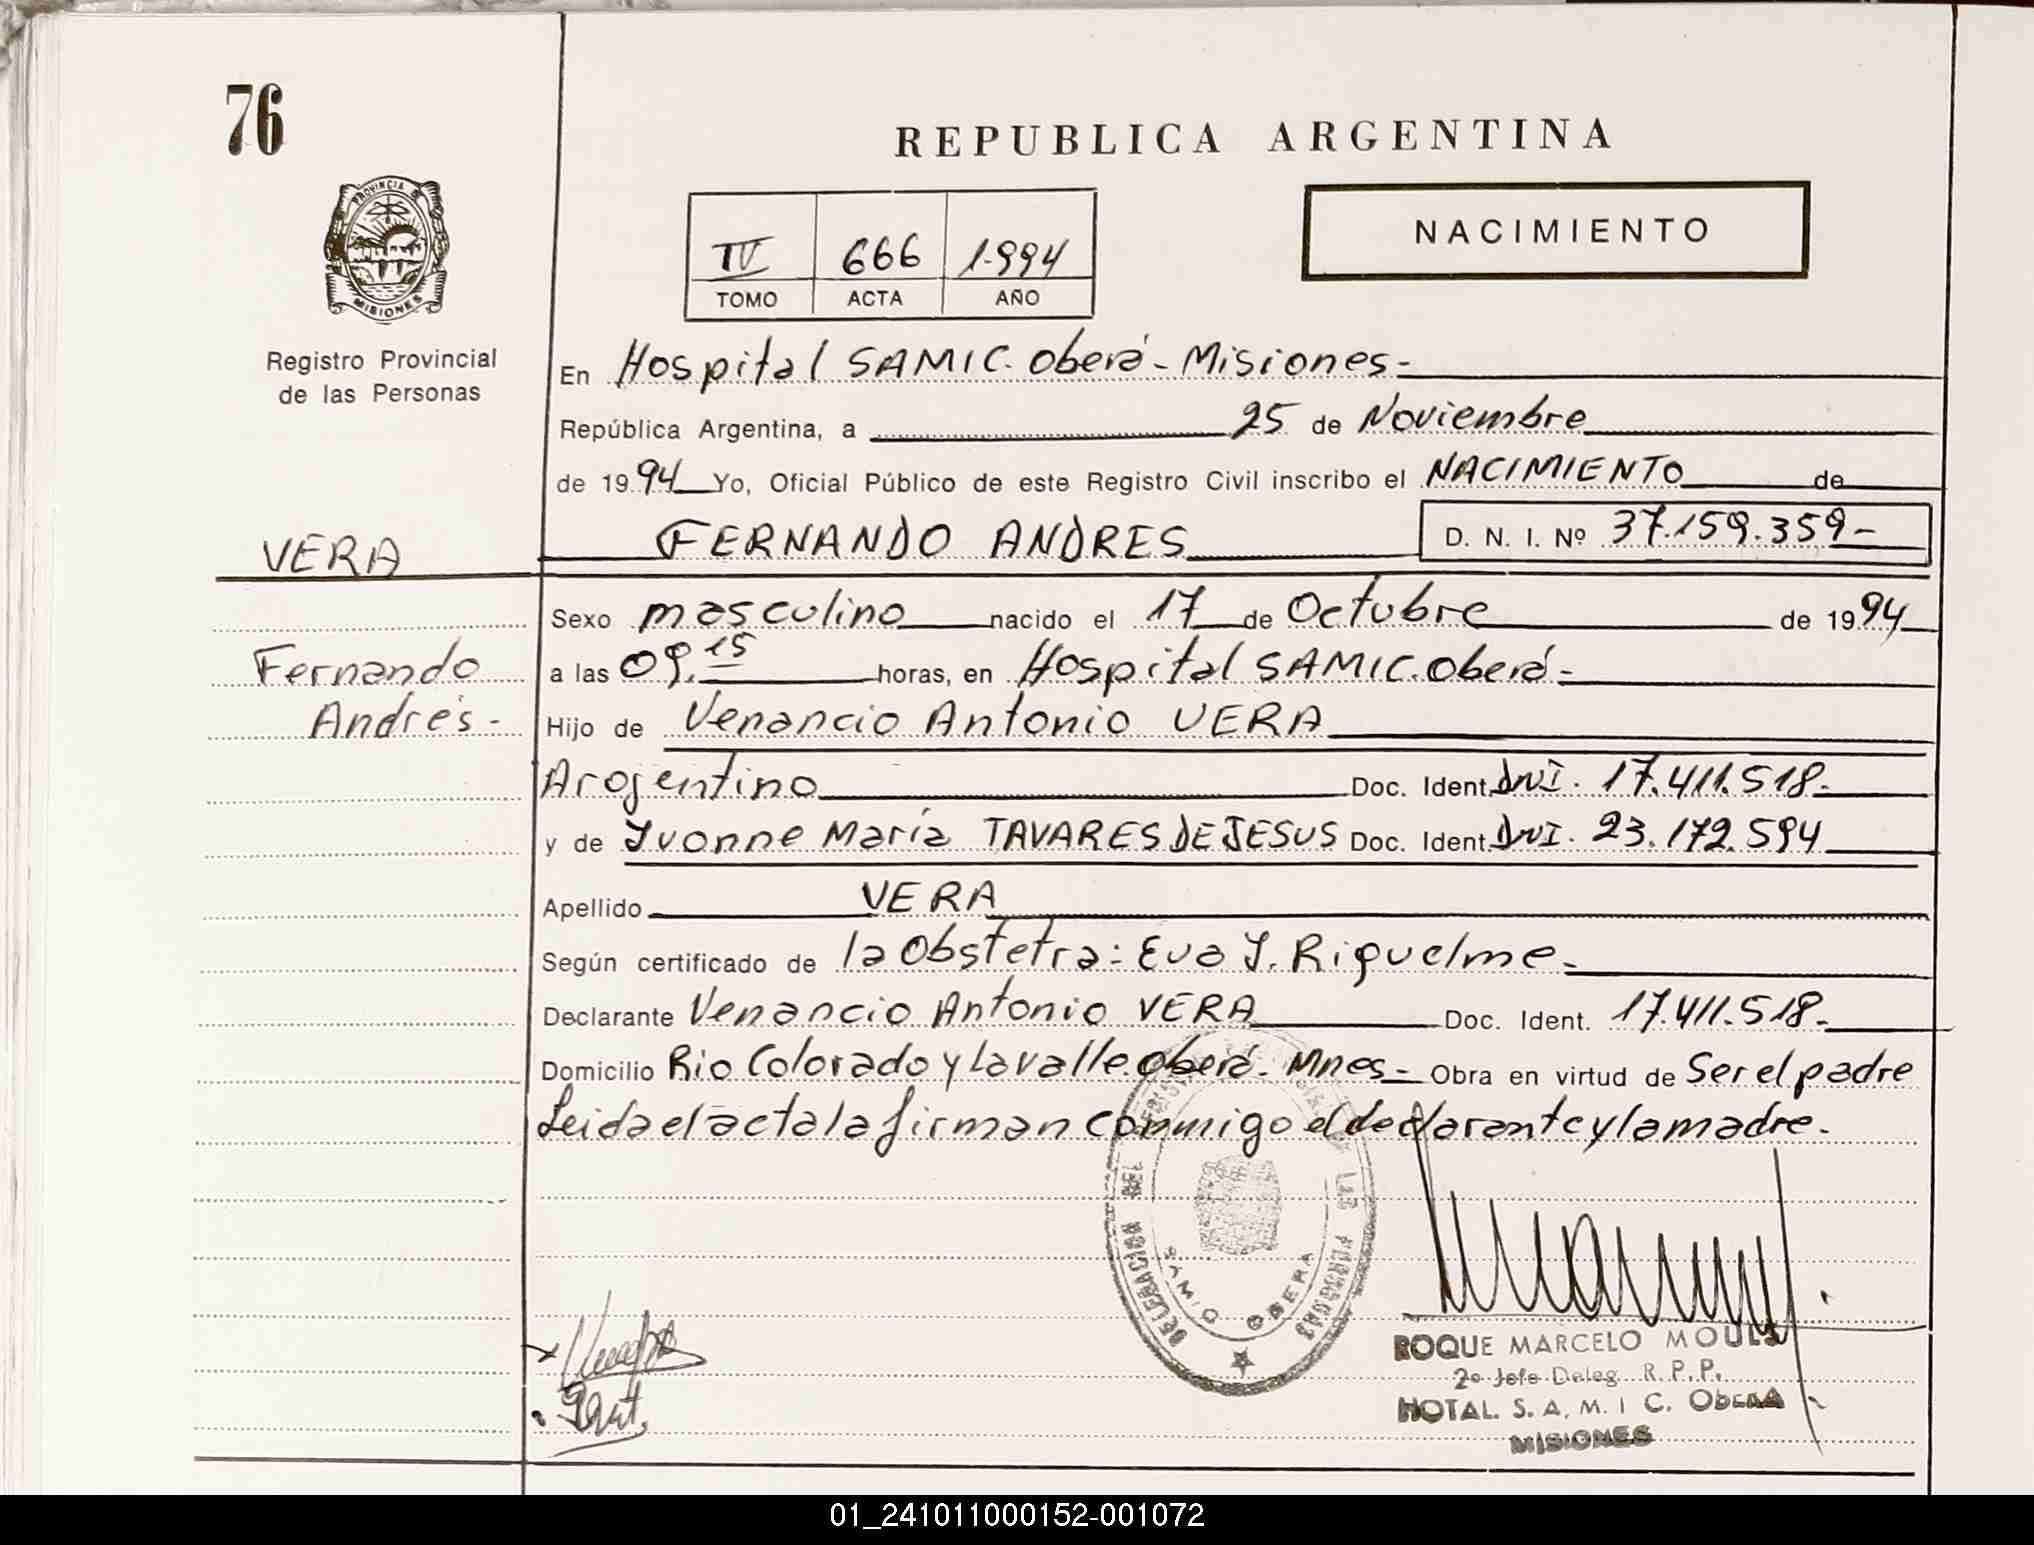 76
REPUBLICA ARGENTINA
PROVINCIA DE
MISIONES
NACIMIENTO
IV 666 1.994
TOMO ACTA AÑO
Registro Provincial
de las Personas
En Hospital SAMIC. Oberá - Misiones -
República Argentina, a 25 de Noviembre
de 1994 Yo, Oficial Público de este Registro Civil inscribo el NACIMIENTO de
VERA
FERNANDO ANDRES D. N. I. Nº 37.159.359-
Sexo masculino nacido el 17 de Octubre de 1994
Fernando
Andrés -
a las 09.15 horas, en Hospital SAMIC. Oberá -
Hijo de Venancio Antonio VERA
Arogentino Doc. Ident. DNI. 17.411.518.-
y de Yvonne María TAVARES DE JESUS Doc. Ident. DNI. 23.172.594
Apellido VERA
Según certificado de la Obstetra: Eva Y. Riquelme.-
Declarante Venancio Antonio VERA Doc. Ident. 17.411.518.-
Domicilio Rio Colorado y Lavalle. Oberá. Mnes - Obra en virtud de Ser el padre
Leida el acta la firman conmigo el declarante y la madre.-
DELEGACION DEL LAS PERSONAS
SAMIC OBERA
ROQUE MARCELO
2º Jefe Deleg. R. P. P.
HOTAL. S. A. M. I C. OBERA
MISIONES
01_241011000152-001072